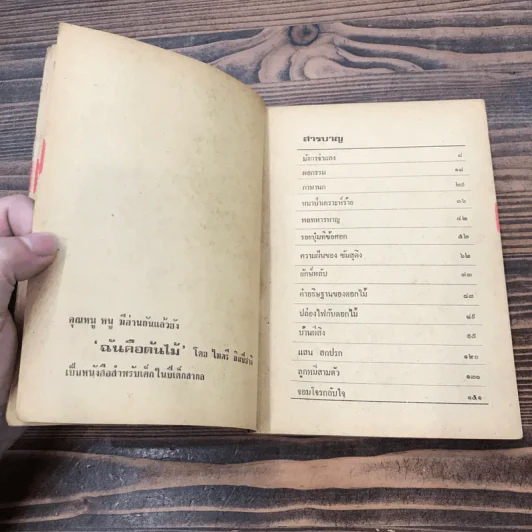 คุณหนู หนู มีอ่านกันแล้วยัง
'ฉันคือต้นไม้' โดย ไมตรี
เป็นหนังสือสำหรับเด็กในปีเด็กสากล
สารบาญ
มังกรจำแลง ๘
ผลกรรม ๑๘
ภาษานก ๒๕
หมาป่าเคราะห์ร้าย ๓๖
พลทหารหาญ ๔๒
รอยบุ๋มที่ข้อศอก ๕๒
ความฝันของ ซัมสุดิง ๖๒
ยักษ์หลับ ๗๗
คำอธิษฐานของดอกไม้ ๘๓
ปล่องไฟกับดอกไม้ ๘๙
บ้านผีสิง ๙๙
แสน สกปรก ๑๒๐
ลูกหมีสามตัว ๑๓๐
จอมโจรกลับใจ ๑๕๑